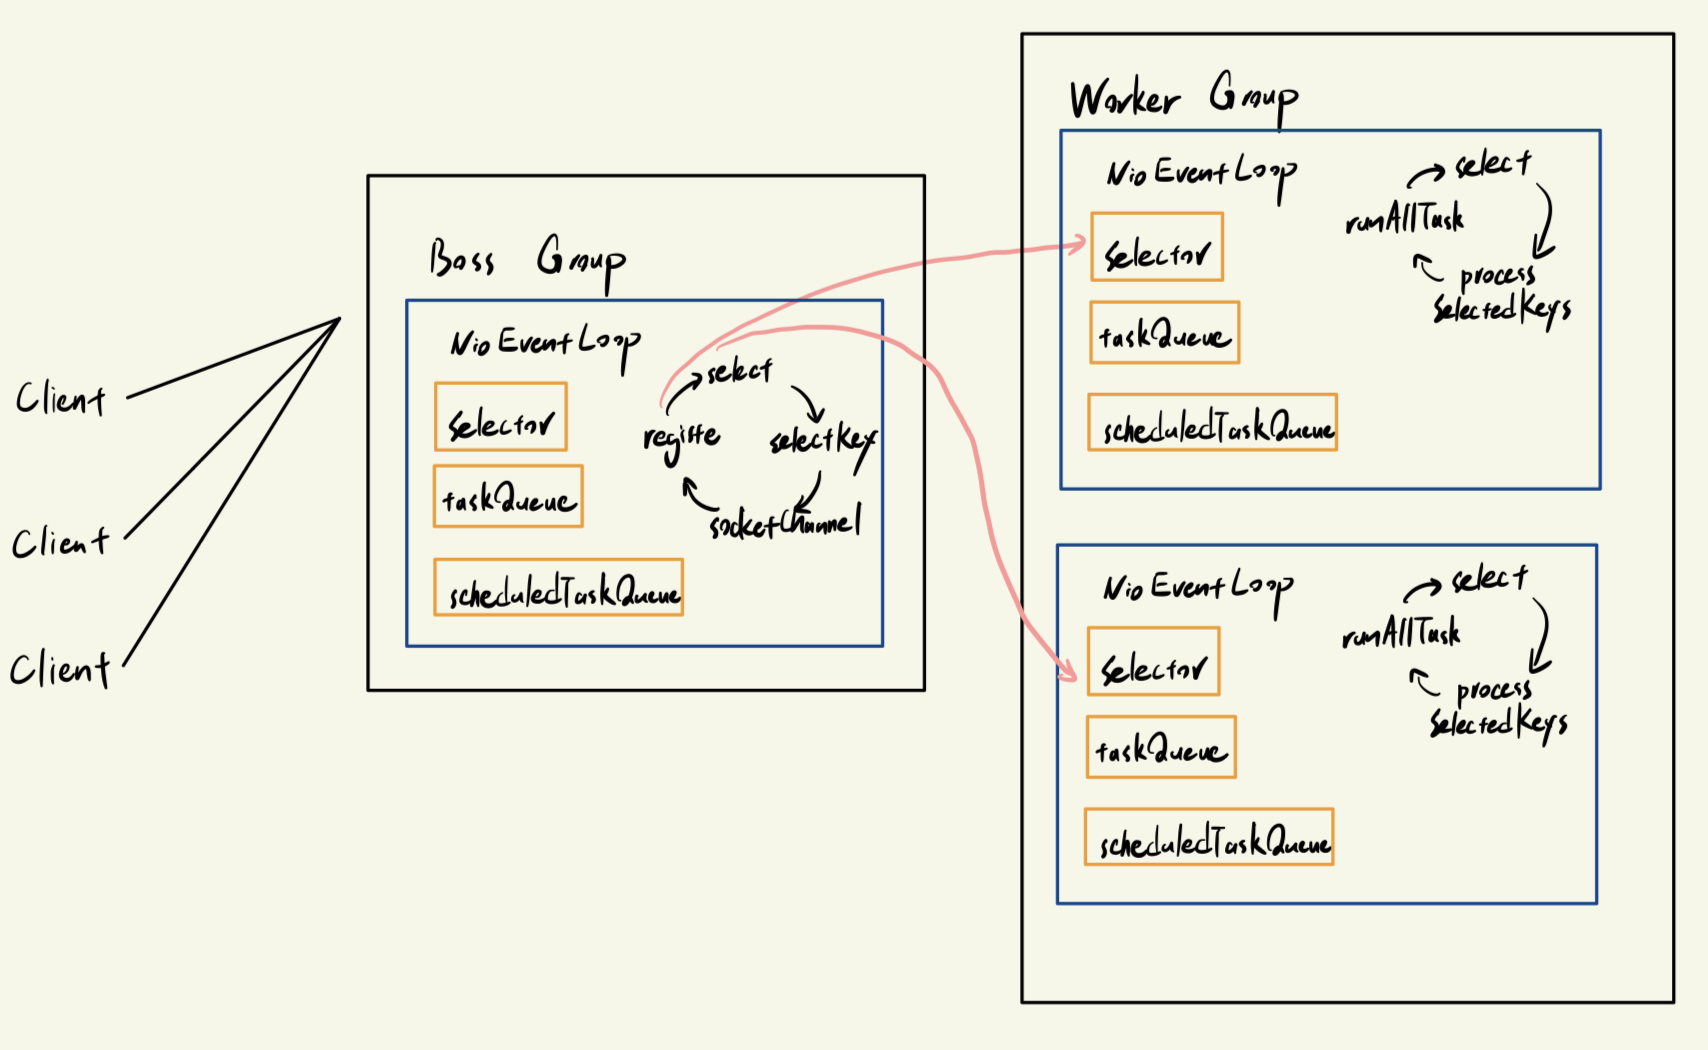 Client
Client
Client
Boss Group
NioEventLoop
Selector
taskQueue
scheduledTaskQueue
select
selectKey
socketChannel
registe
Worker Group
NioEventLoop
Selector
taskQueue
scheduledTaskQueue
select
process
SelectedKeys
runAllTask
NioEventLoop
Selector
taskQueue
scheduledTaskQueue
select
process
SelectedKeys
runAllTask